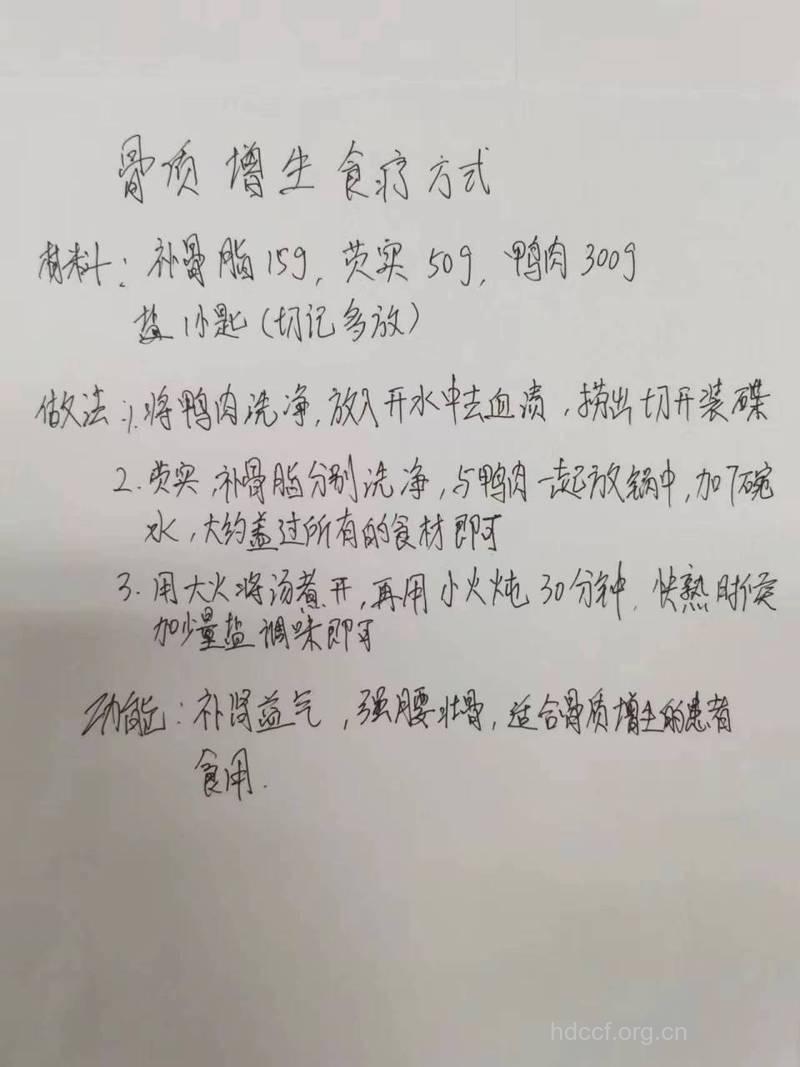 骨质增生食疗方式
材料：补骨脂15g，芡实50g，鸭肉300g
盐1小匙（切记多放）
做法：1.将鸭肉洗净，放入开水中去血渍，捞出切开装碟
2.芡实，补骨脂分别洗净，与鸭肉一起放锅中，加7碗
水，大约盖过所有的食材即可
3.用大火将汤煮开，再用小火炖30分钟，快熟时候
加少量盐调味即可
功能：补肾益气，强腰壮骨，适合骨质增生的患者
食用.
hdccf.org.cn